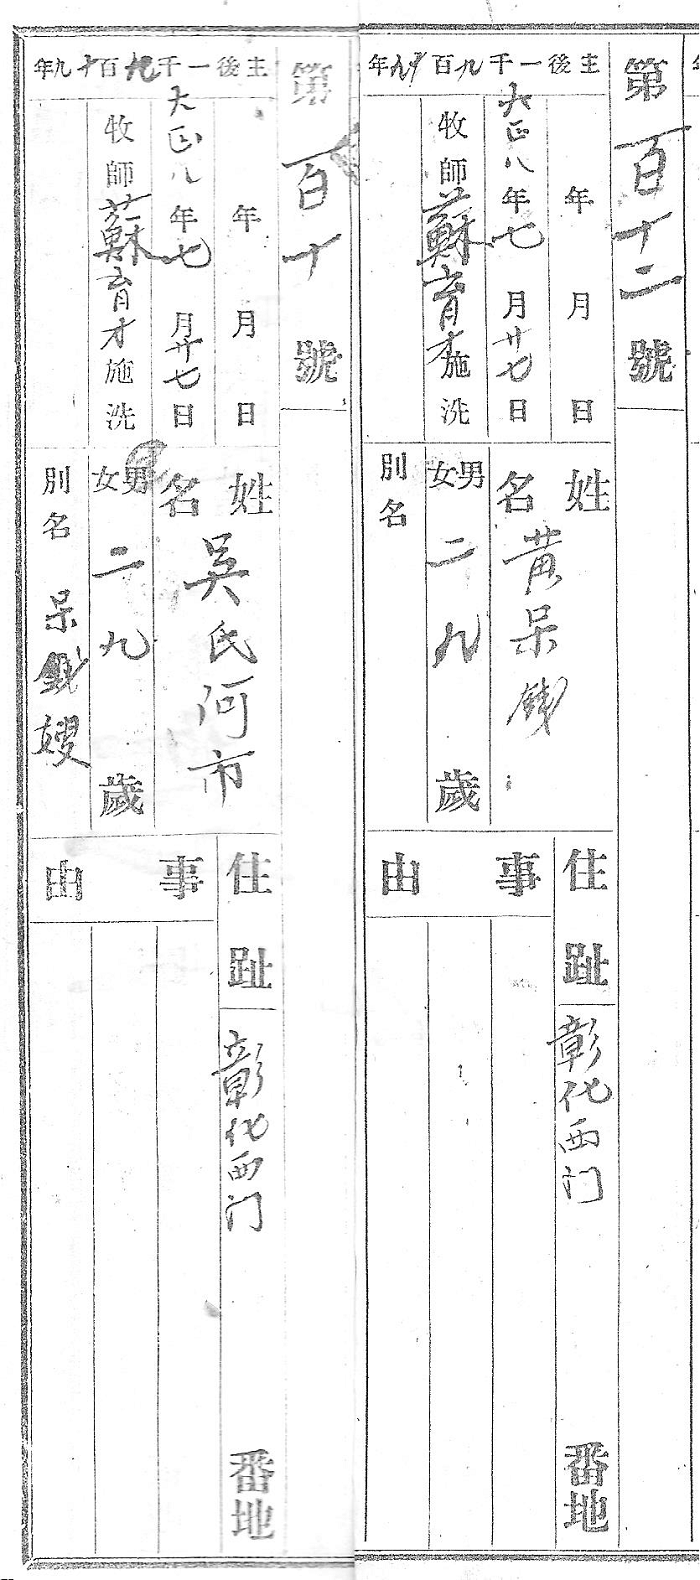 第百十二號
主後一千九百十九年
年 月 日
大正八年七月廿七日
牧師蘇育才施洗
姓名 黄呆錢
男女 二九歲
別名
住趾 彰化西门 番地
事由
第百十號
主後一千九百十九年
年 月 日
大正八年七月廿七日
牧師蘇育才施洗
姓名 吳氏何市
男女 二九歲
別名 呆錢嫂
住趾 彰化西门 番地
事由